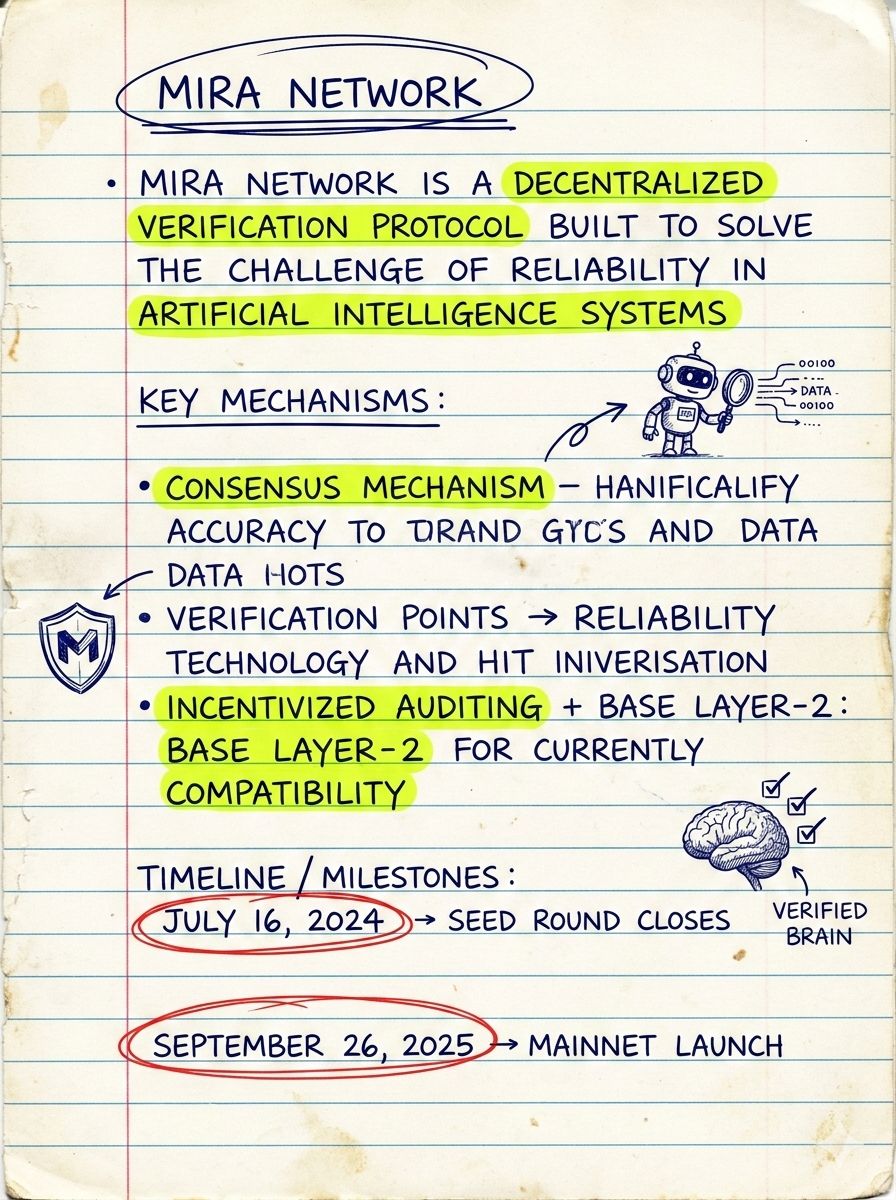 MIRA NETWORK
• MIRA NETWORK IS A DECENTRALIZED
VERIFICATION PROTOCOL BUILT TO SOLVE
THE CHALLENGE OF RELIABILITY IN
ARTIFICIAL INTELLIGENCE SYSTEMS
00100
DATA
00100
KEY MECHANISMS:
• CONSENSUS MECHANISM – HANIFICALIFY
ACCURACY TO AND DATA
DATA HOTS
M
• VERIFICATION POINTS → RELIABILITY
TECHNOLOGY AND HIT INIVERISATION
• INCENTIVIZED AUDITING + BASE LAYER-2:
BASE LAYER-2 FOR CURRENTLY
COMPATIBILITY
TIMELINE / MILESTONES:
JULY 16, 2024 → SEED ROUND CLOSES
VERIFIED
BRAIN
SEPTEMBER 26, 2025 → MAINNET LAUNCH